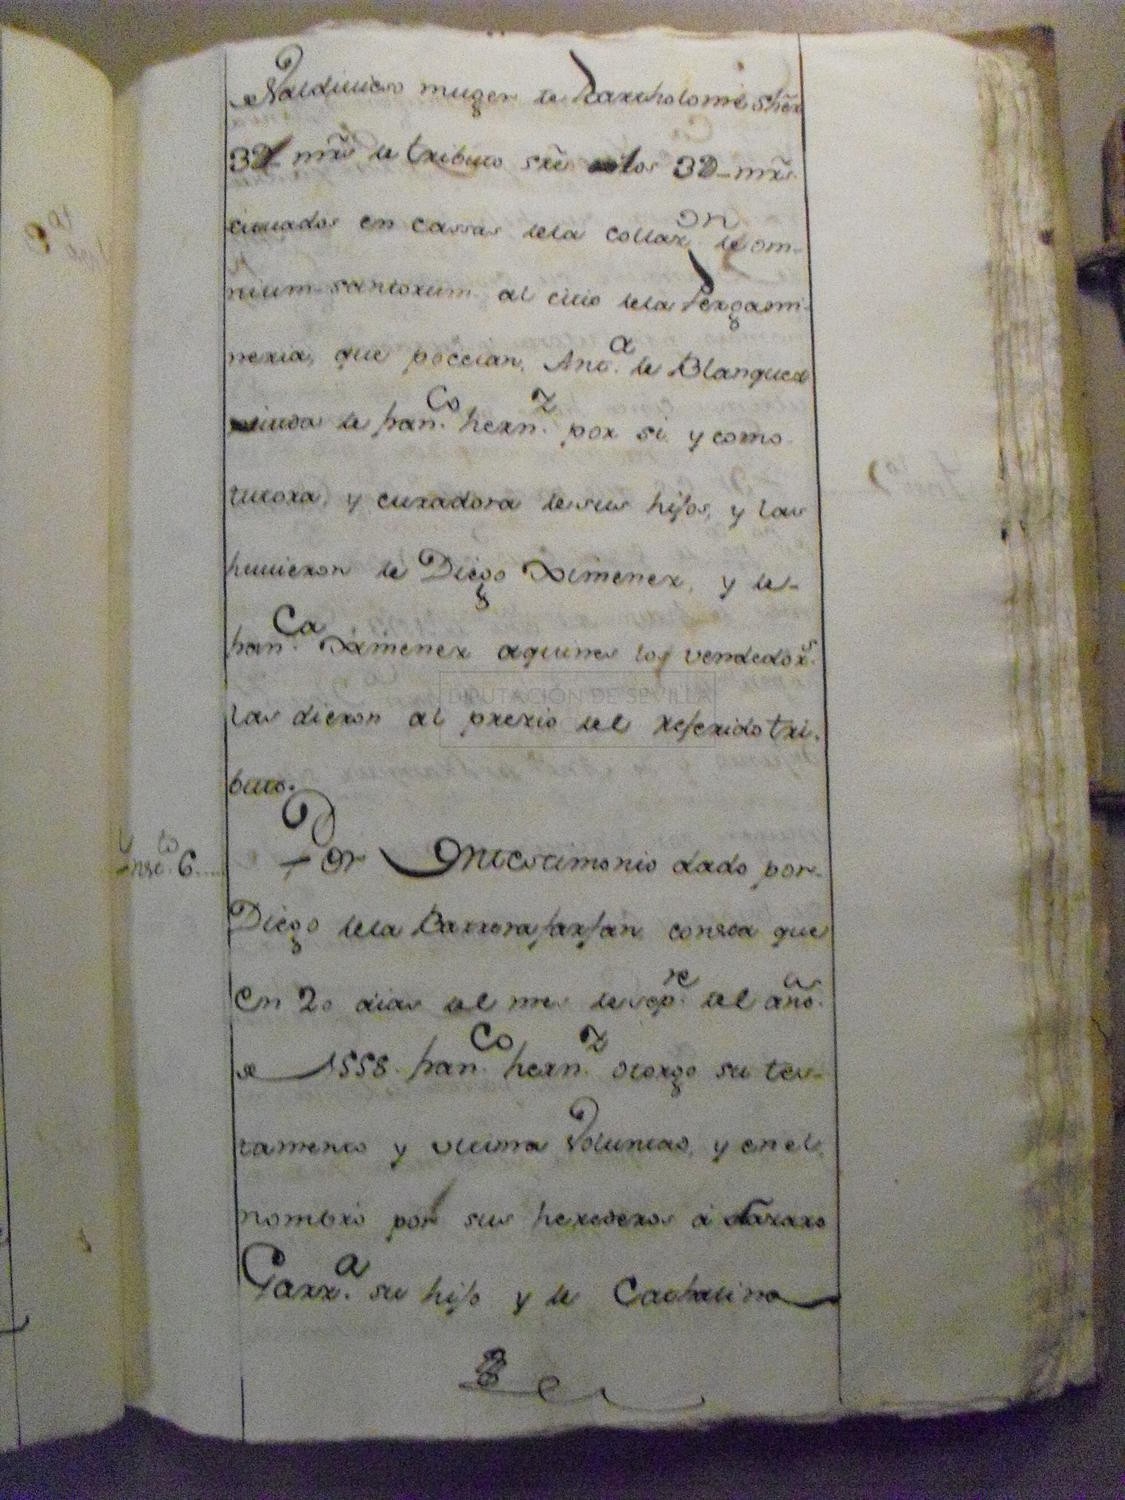 Valdivieso muger de Bartholome Sches
32 mrs̃ de tributo srẽ los 32 mrs̃
cituados en cassas dela collaz.on de om-
nium santorum al citio dela Pergami-
neria, que poccian, Ant.a de Blanqued
viuda de fran.co hern.z por si y como
tutora, y curadora de sus hijos, y las
huuieron de Diego Ximenez, y de
fran.ca Ximenez aquines los vendedor.s
las dieron al prexio del referido tri-
buto.
Ynst.to 6....
Por Untestimonio dado por
Diego dela Barrera farfan consta que
en 20 dias del mes de sep.re del año.
de 1558 fran.co hern.z otorgo su tes-
tamento y vltima Voluntad, y en el
nombró por sus herederos á
Garz.a su hijo y de Cathalina
DIPUTACIÓN DE SEVILLA